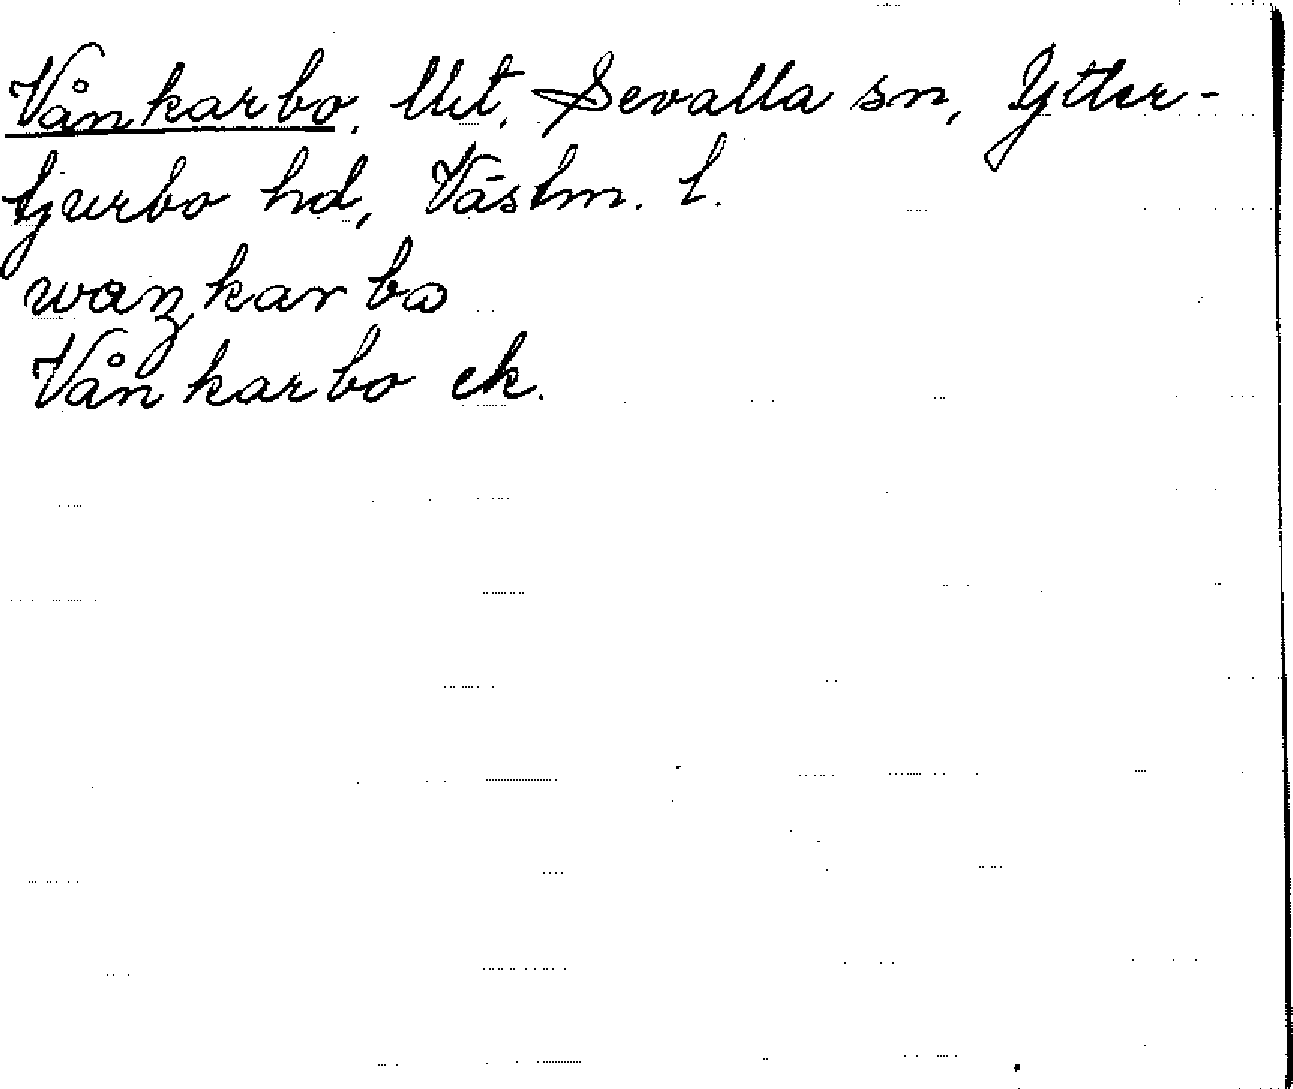 Vånkarbo, Utt, Sevalla sn, Ytter-
tjurbo hd, Västm. l.
wankarbo
Vånkarbo ek.